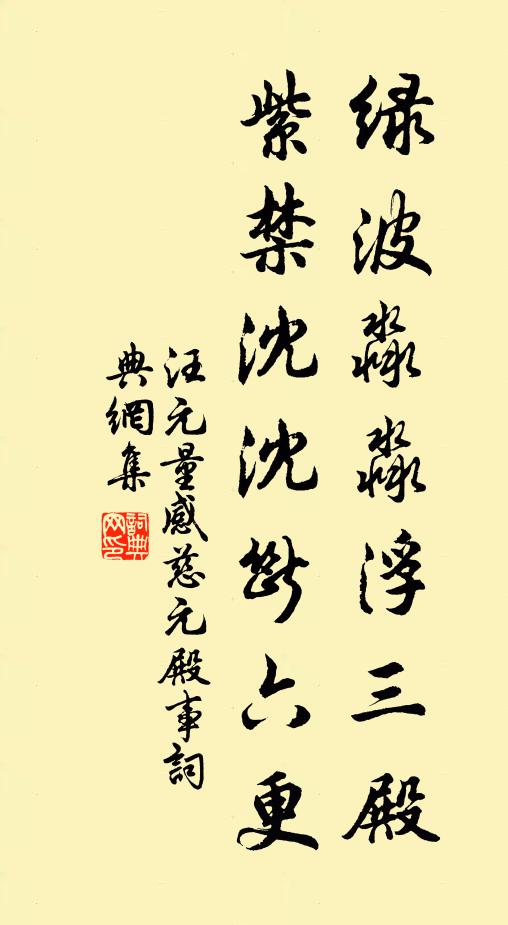 綠波淼淼浮三殿
紫禁沈沈斷六更
汪元量感慈元殿事詞
典網集
詞典
网印